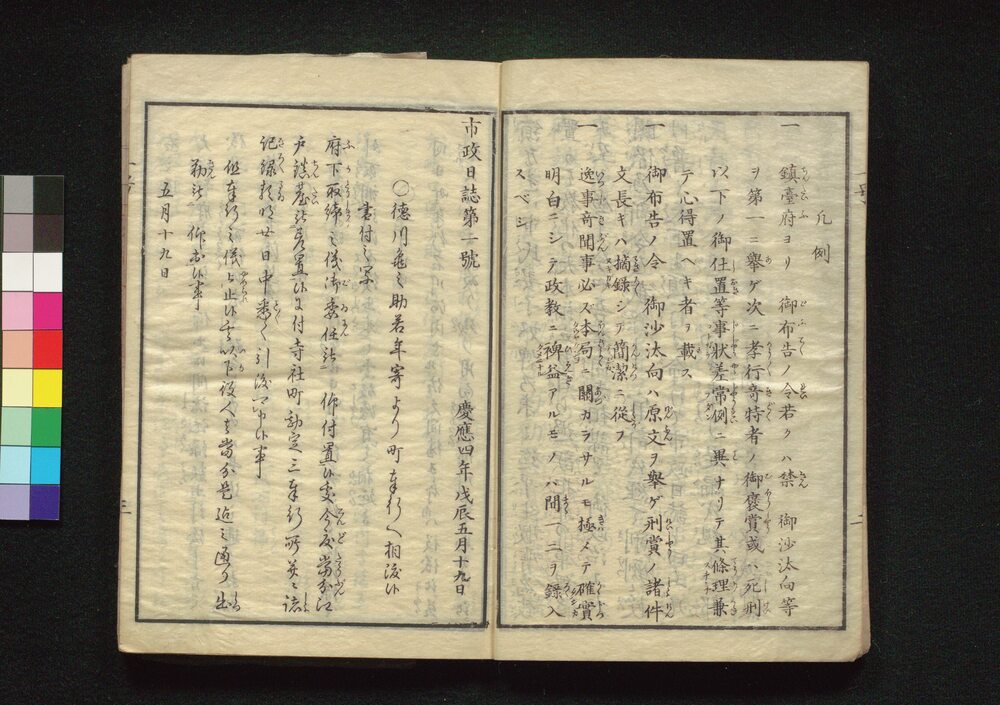 凡例
一 鎮臺府ヨリ 御布告ノ令若クハ禁 御沙汰向等
ヲ第一ニ舉ゲ次ニ孝行奇特者ノ御褒賞或ハ死刑
以下ノ御仕置等事状差常例ニ異ナリテ其條理兼
テ心得置ヘキ者ヲ載ス
一 御布告ノ令 御沙汰向ハ原文ヲ舉ゲ刑賞ノ諸件
文長キハ摘録シテ簡潔ニ從フ
一 逸事奇聞事必ス本局ニ關カラサルモ極メテ確實
明白ニシテ政教ニ裨益アルモノハ間一二ヲ録入
スベシ
市政日誌第一號
慶應四年戊辰五月十九日
○德川龜之助若年寄より町奉行へ相渡候
書付之寫
府下取締之儀御委任被 仰付置候處今度當分江
戸鎮臺被差置候に付寺社町勘定三奉行所并ニ諸
記録類明廿日中悉く引渡可申候事
但奉行之儀被止候其以下役人も當分是迄之通り出
勤被 仰出候事
五月十九日